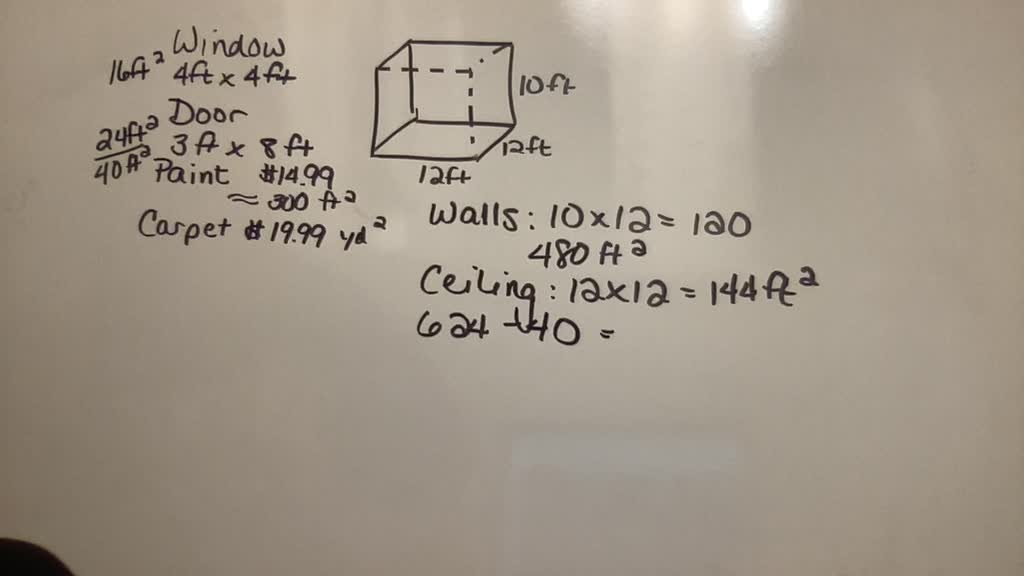 Window
16ft² 4ft x 4ft
Door
24ft² 3 ft x 8 ft
40ft² Paint $14.99
≈ 300 ft²
Carpet $19.99 yd²
10ft
12ft
12ft
Walls: 10x12 = 120
480 ft²
Ceiling: 12x12 = 144ft²
624 - 40 =